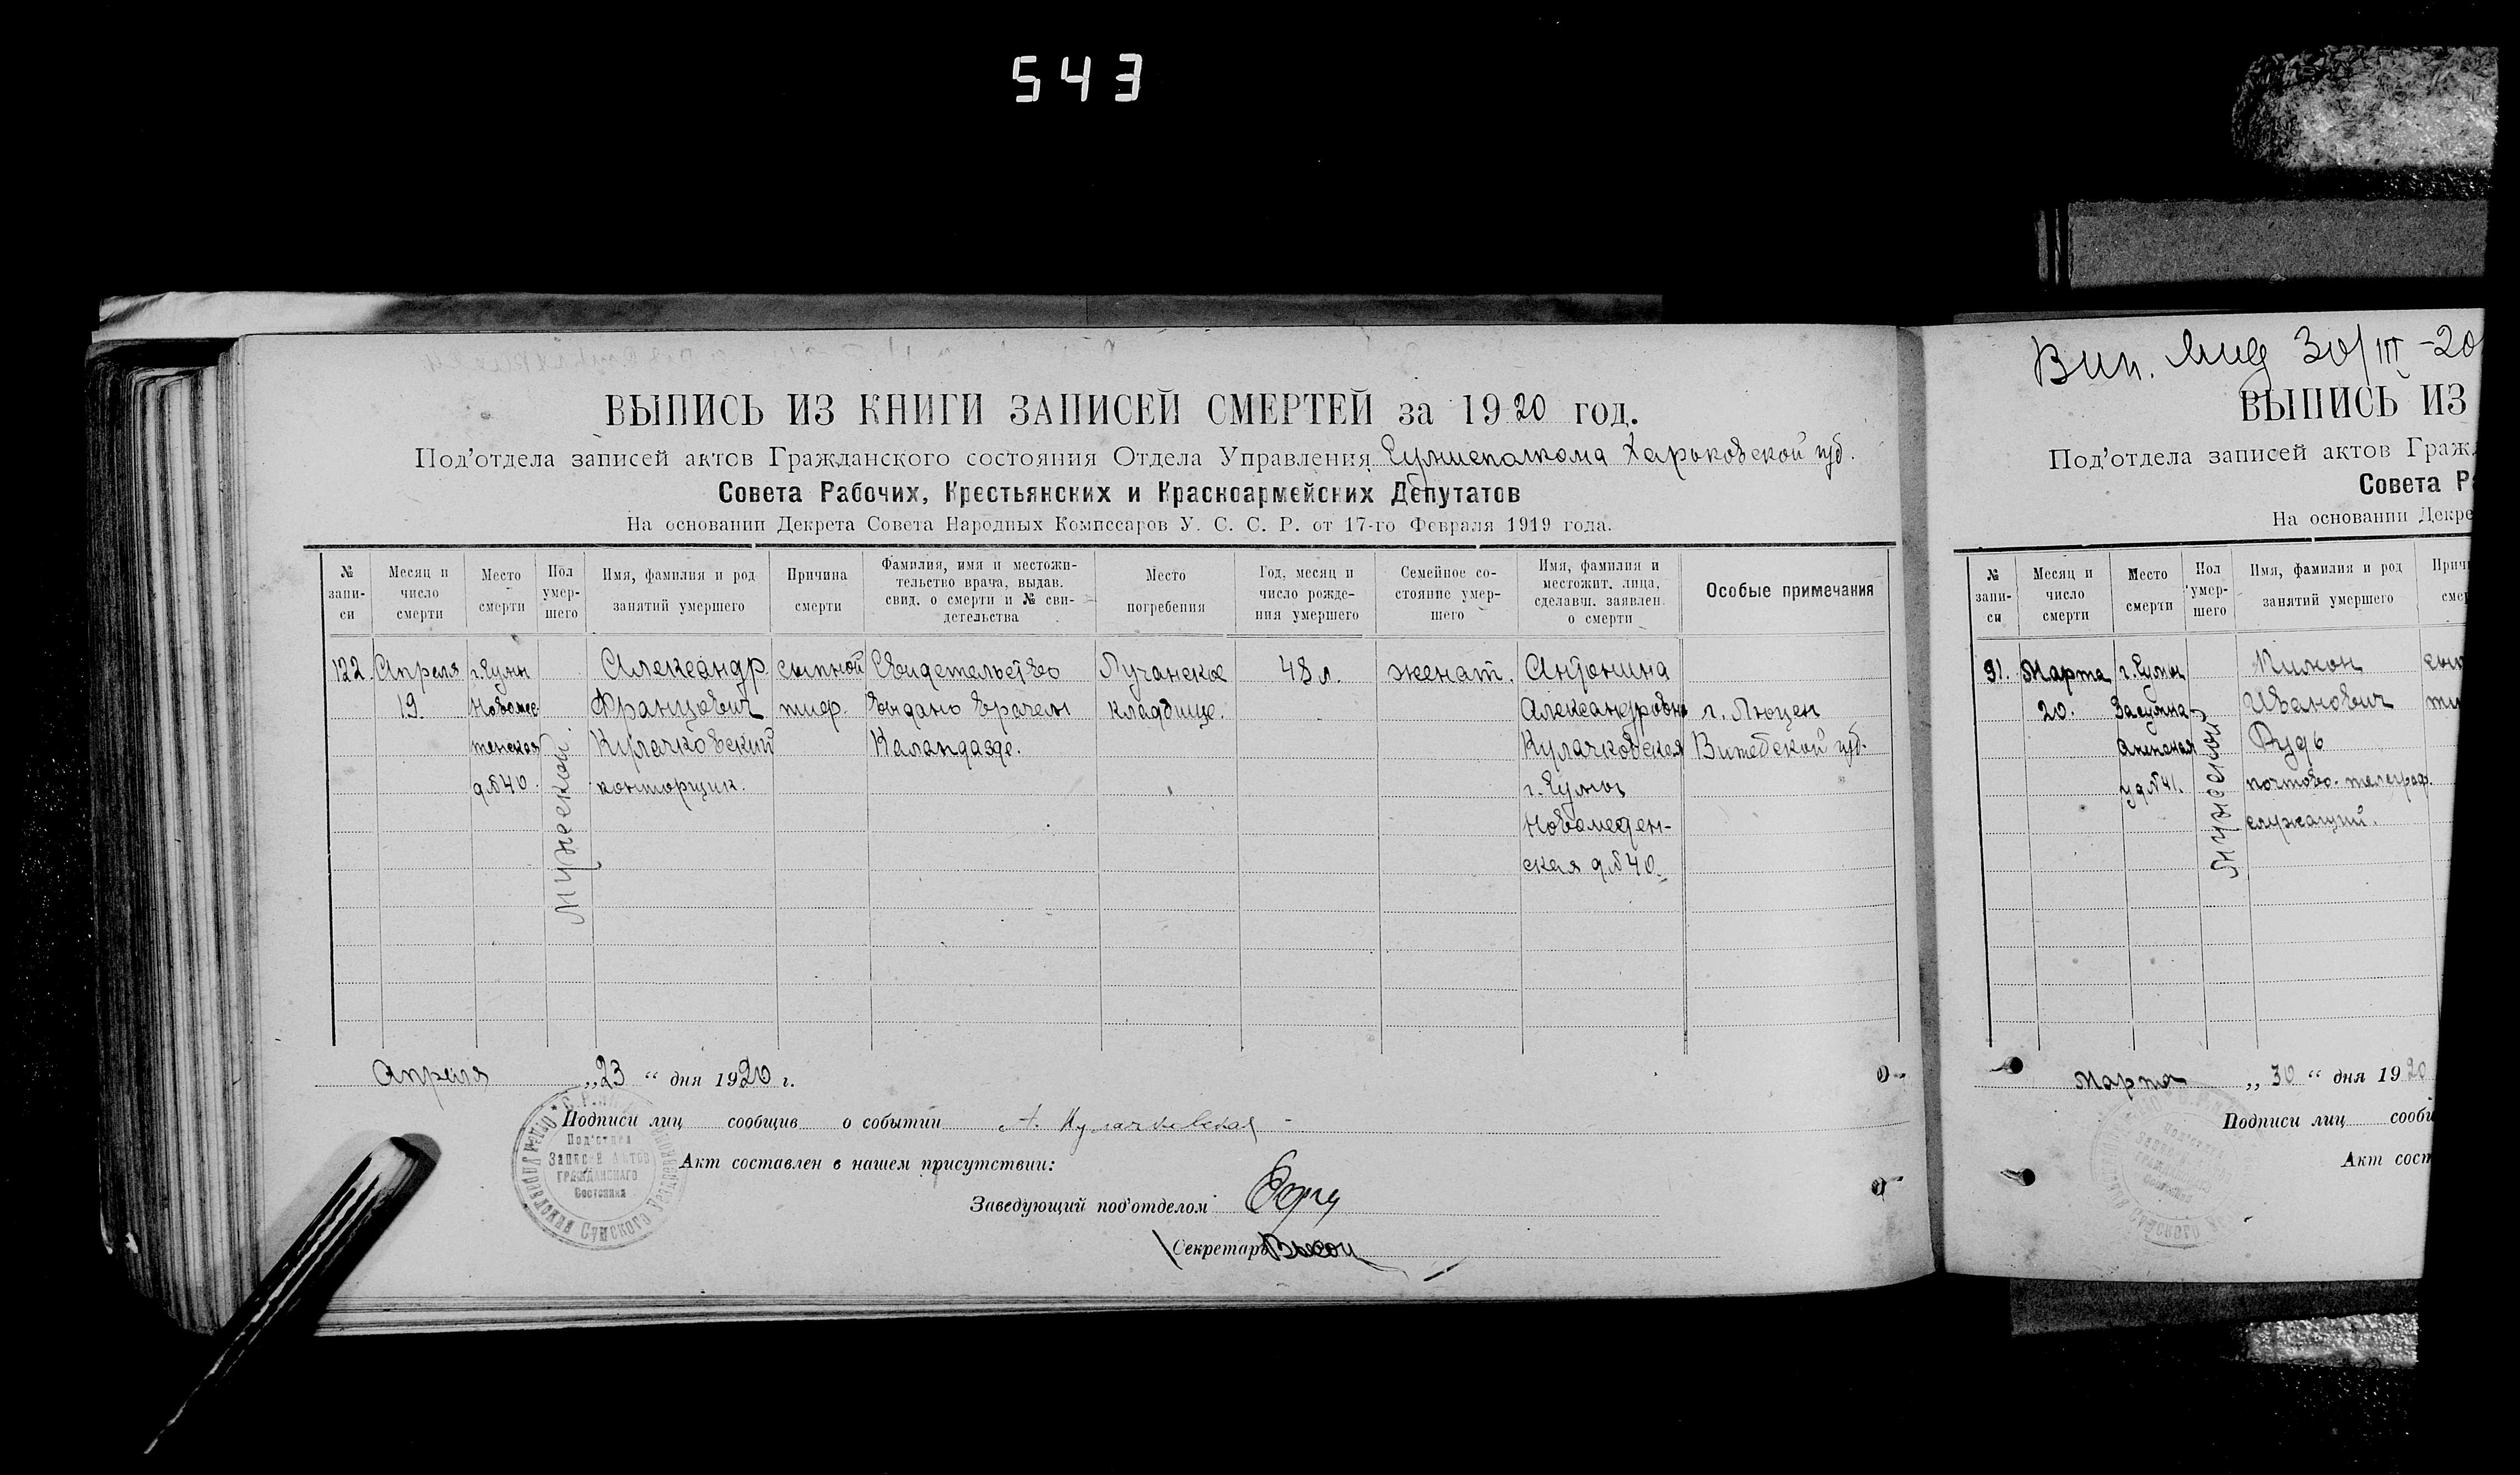 543
ВЫПИСЬ ИЗ КНИГИ ЗАПИСЕЙ СМЕРТЕЙ за 1920 год.
Под'отдела записей актов Гражданского состояния Отдела Управления Сумисполкома Харьковской губ.
Совета Рабочих, Крестьянских и Красноармейских Депутатов
На основании Декрета Совета Народных Комиссаров У. С. С. Р. от 17-го Февраля 1919 года.
№ запи-
си
Месяц и
число
смерти
Место
смерти
Пол
умер-
шего
Имя, фамилия и род
занятий умершего
Причина
смерти
Фамилия, имя и местожи-
тельство врача, выдав.
свид. о смерти и № сви-
детельства
Место
погребения
Год, месяц и
число рожде-
ния умершего
Семейное со-
стояние умер-
шего
Имя, фамилия и
местожит. лица,
сделавш. заявлен.
о смерти
Особые примечания
122.
Апреля
19.
г. Сумы
д. № 40.
Мужской
Александр
Францович
Кулачковский
конторщик.
сыпной
тиф.
Свидетельство
выдано врачем
Каландадзе.
Лучанское
кладбище.
48 л.
женат.
Антонина
Александровна
Кулачковская
г. Сумы
ская д. № 40.
г. Люцен
Витебской губ.
Апреля „23“ дня 1920 г.
Подписи лиц сообщив о событии А. Кулачковская
Акт составлен в нашем присутствии:
Заведующий под'отделом
Секретарь
Под'отдел
Записей Актов
Гражданского
Состояния
Сумского
30/III-20
ВЫПИСЬ ИЗ
Под'отдела записей актов Гражд
Совета Р
На основании Декре
№ запи-
си
Месяц и
число
смерти
Место
смерти
Пол
умер-
шего
Имя, фамилия и род
занятий умершего
Прич
смер
91.
Марта
20.
г. Сумы
д № 41.
Мужской
Иванович
Рудь
почтово-телеграф.
служащий.
сып
ти
Марта „30“ дня 1920
Подписи лиц сооби
Акт сост